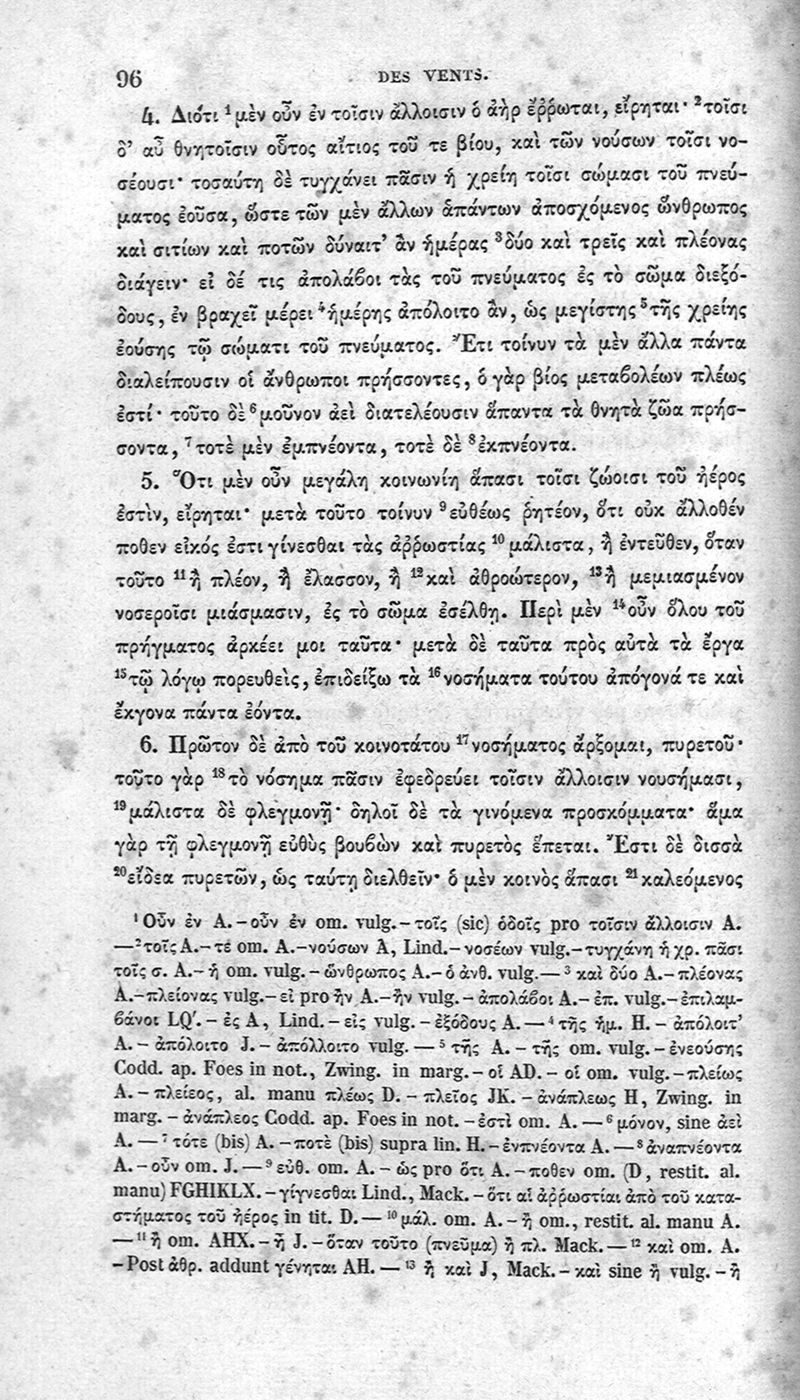 96 DES VENTS.
4. Διότι ¹μὲν οὖν ἐν τοῖσιν ἄλλοισιν ὁ ἀὴρ ἔῤῥωται, εἴρηται· ²τοῖσι
δ’ αὖ θνητοῖσιν οὗτος αἴτιος τοῦ τε βίου, καὶ τῶν νούσων τοῖσι νο-
σέουσι· τοσαύτη δὲ τυγχάνει πᾶσιν ἡ χρείη τοῖσι σώμασι τοῦ πνεύ-
ματος ἐοῦσα, ὥστε τῶν μὲν ἄλλων ἁπάντων ἀποσχόμενος ὥνθρωπος
καὶ σιτίων καὶ ποτῶν δύναιτ’ ἂν ἡμέρας ³δύο καὶ τρεῖς καὶ πλέονας
διάγειν· εἰ δέ τις ἀπολάβοι τὰς τοῦ πνεύματος ἐς τὸ σῶμα διεξό-
δους, ἐν βραχεῖ μέρει ⁴ἡμέρης ἀπόλοιτο ἂν, ὡς μεγίστης ⁵τῆς χρείης
ἐούσης τῷ σώματι τοῦ πνεύματος. Ἔτι τοίνυν τὰ μὲν ἄλλα πάντα
διαλείπουσιν οἱ ἄνθρωποι πρήσσοντες, ὁ γὰρ βίος μεταβολέων πλέως
ἐστί· τοῦτο δὲ ⁶μοῦνον ἀεὶ διατελέουσιν ἅπαντα τὰ θνητὰ ζῶα πρήσ-
σοντα, ⁷τοτὲ μὲν ἐμπνέοντα, τοτὲ δὲ ⁸ἐκπνέοντα.
5. Ὅτι μὲν οὖν μεγάλη κοινωνίη ἅπασι τοῖσι ζώοισι τοῦ ἠέρος
ἐστὶν, εἴρηται· μετὰ τοῦτο τοίνυν ⁹εὐθέως ῥητέον, ὅτι οὐκ ἄλλοθέν
ποθεν εἰκός ἐστι γίνεσθαι τὰς ἀῤῥωστίας ¹⁰μάλιστα, ἢ ἐντεῦθεν, ὅταν
τοῦτο ¹¹ἢ πλέον, ἢ ἔλασσον, ἢ ¹²καὶ ἀθροώτερον, ¹³ἢ μεμιασμένον
νοσεροῖσι μιάσμασιν, ἐς τὸ σῶμα ἐσέλθῃ. Περὶ μὲν ¹⁴οὖν ὅλου τοῦ
πρήγματος ἀρκέει μοι ταῦτα· μετὰ δὲ ταῦτα πρὸς αὐτὰ τὰ ἔργα
¹⁵τῷ λόγῳ πορευθεὶς, ἐπιδείξω τὰ ¹⁶νοσήματα τούτου ἀπόγονά τε καὶ
ἔκγονα πάντα ἐόντα.
6. Πρῶτον δὲ ἀπὸ τοῦ κοινοτάτου ¹⁷νοσήματος ἄρξομαι, πυρετοῦ·
τοῦτο γὰρ ¹⁸τὸ νόσημα πᾶσιν ἐφεδρεύει τοῖσιν ἄλλοισιν νουσήμασι,
¹⁹μάλιστα δὲ φλεγμονῇ· δηλοῖ δὲ τὰ γινόμενα προσκόμματα· ἅμα
γὰρ τῇ φλεγμονῇ εὐθὺς βουβὼν καὶ πυρετὸς ἕπεται. Ἔστι δὲ δισσὰ
²⁰εἴδεα πυρετῶν, ὡς ταύτῃ διελθεῖν· ὁ μὲν κοινὸς ἅπασι ²¹καλεόμενος
¹ Οὖν ἐν A. – οὖν ἐν om. vulg. – τοῖς (sic) ὁδοῖς pro τοῖσιν ἄλλοισιν A.
— ² τοῖς A. – τέ om. A. – νούσων A, Lind. – νοσέων vulg. – τυγχάνη ἡ χρ. πᾶσι
τοῖς σ. A. – ἡ om. vulg. – ὤνθρωπος A. – ὁ ἄνθ. vulg. — ³ καὶ δύο A. – πλέονας
A. – πλείονας vulg. – εἰ pro ἢν A. – ἢν vulg. – ἀπολάβοι A. – ἐπ. vulg. – ἐπιλαμ-
βάνοι LQ′. – ἐς A, Lind. – εἰς vulg. – ἐξόδους A. — ⁴ τῆς ἡμ. H. – ἀπόλοιτ’
A. – ἀπόλοιτο J. – ἀπόλλοιτο vulg. — ⁵ τῆς A. – τῆς om. vulg. – ἐνεούσης
Codd. ap. Foes in not., Zwing. in marg. – οἱ AD. – οἱ om. vulg. – πλείως
A. – πλείεος, al. manu πλέως D. – πλεῖος JK. – ἀνάπλεως H, Zwing. in
marg. – ἀνάπλεος Codd. ap. Foes in not. – ἐστὶ om. A. — ⁶ μόνον, sine ἀεὶ
A. — ⁷ τότε (bis) A. – ποτὲ (bis) supra lin. H. – ἐνπνέοντα A. — ⁸ ἀναπνέοντα
A. – οὖν om. J. — ⁹ εὐθ. om. A. – ὡς pro ὅτι A. – ποθεν om. (D, restit. al.
manu) FGHIKLX. – γίγνεσθαι Lind., Mack. – ὅτι αἱ ἀῤῥωστίαι ἀπὸ τοῦ κατα-
στήματος τοῦ ἠέρος in tit. D. — ¹⁰ μάλ. om. A. – ἢ om., restit. al. manu A.
— ¹¹ ἢ om. AHX. – ἢ J. – ὅταν τοῦτο (πνεῦμα) ἢ πλ. Mack. — ¹² καὶ om. A.
– Post ἀθρ. addunt γένηται AH. — ¹³ ἢ καὶ J, Mack. – καὶ sine ἢ vulg. – ἢ